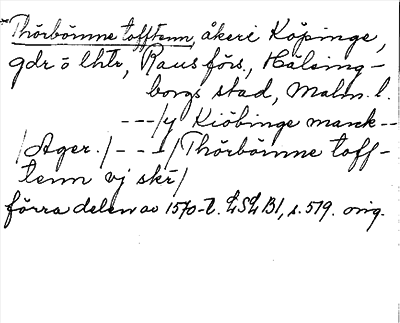 Thörbömne tofftenn, åkeri Köpinge,
gdr o lhtr, Raus förs, Hälsing-
borgs stad, Malm. l.
---/y Kiöbinge marck--
/Ager:/---/Thörbömne toff-
tenn vj skr/
förra delen av 1570-t. LSLB1, s. 519. orig.